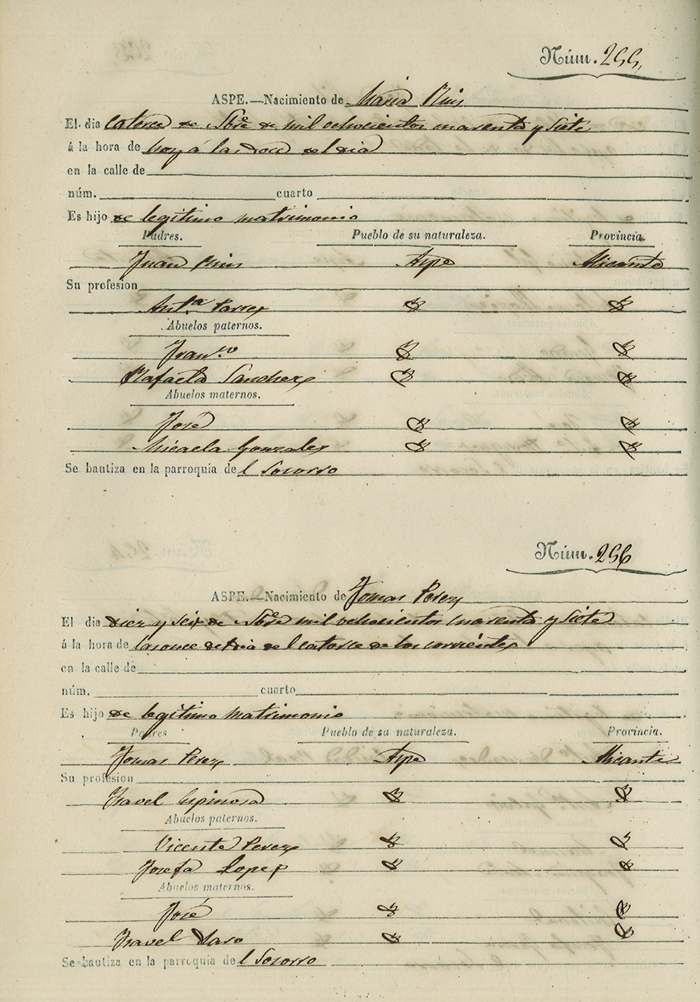 Núm. 255
ASPE.—Nacimiento de Maria Ruis
El dia Catorce de Sbre de mil ochocientos cuarenta y Siete
á la hora de hoy á las doce del dia
en la calle de
núm. cuarto
Es hijo de legitimo matrimonio
Padres. Pueblo de su naturaleza. Provincia.
Juan Ruis Aspe Alicante
Su profesion
Antª
Abuelos paternos.
Franco
Rafaela Sanchez
Abuelos maternos.
José
Micaela Gonzalez
Se bautiza en la parroquia de l Socorro
Núm. 256
ASPE.—Nacimiento de Tomas Perez
El dia diez y seis de Sbre mil ochocientos cuarenta y siete
á la hora de las once del dia del catorce de los corrientes
en la calle de
núm. cuarto
Es hijo de legitimo matrimonio
Padres Pueblo de su naturaleza. Provincia.
Tomas Perez Aspe Alicante
Su profesion
Ysavel Espinosa
Abuelos paternos.
Vicente Perez
Josefa Lopez
Abuelos maternos.
José
Ysavel
Se bautiza en la parroquia de l Socorro